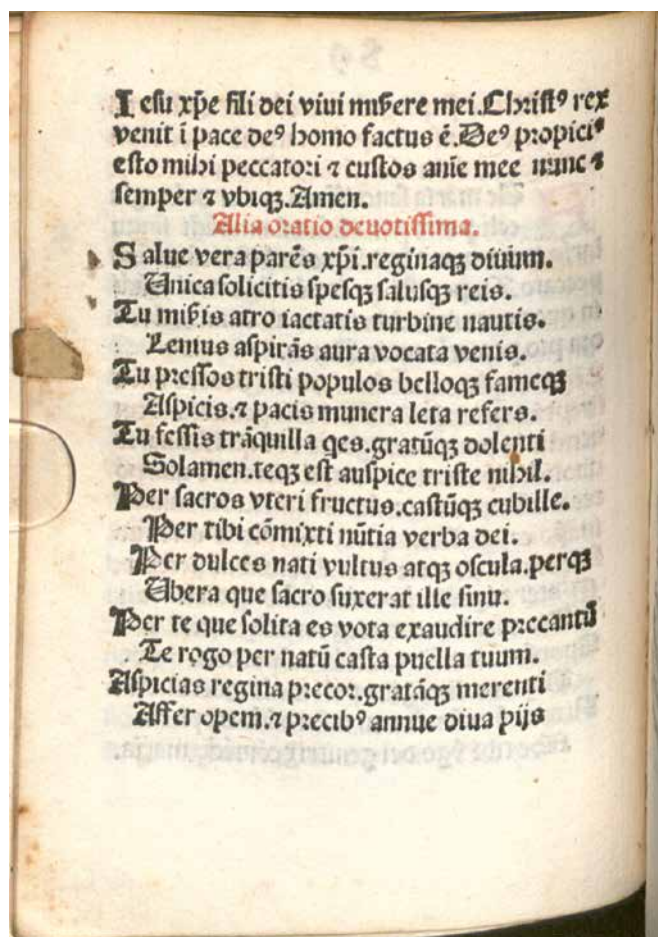 Iesu xp̄e fili dei viui miẜere mei. Christꝰ rex
venit ī pace deꝰ homo factus ē. Deꝰ propiciꝰ
esto mihi peccatori ⁊ custos anīe mee nunc ⁊
semper ⁊ vbiqꝫ. Amen.
Alia oratio deuotissima.
Salue vera parēs xp̄i. reginaqꝫ diuium.
Unica solicitis spesqꝫ salusqꝫ reis.
Tu miẜis atro iactatis turbine nautis.
Lenius aspirās aura vocata venis.
Tu pressos tristi populos belloqꝫ fameqꝫ
Aspicis. ⁊ pacis munera leta refers.
Tu fessis trāquilla qes. gratūqꝫ dolenti
Solamen. teqꝫ est auspice triste nihil.
Per sacros vteri fructus. castūqꝫ cubille.
Per tibi cōmixti nūtia verba dei.
Per dulces nati vultus atqꝫ oscula. perqꝫ
Ubera que sacro suxerat ille sinu.
Per te que solita es vota exaudire precantū
Te rogo per natū casta puella tuum.
Aspicias regina precor. gratāqꝫ merenti
Affer opem. ⁊ precibꝰ annue diua pijs